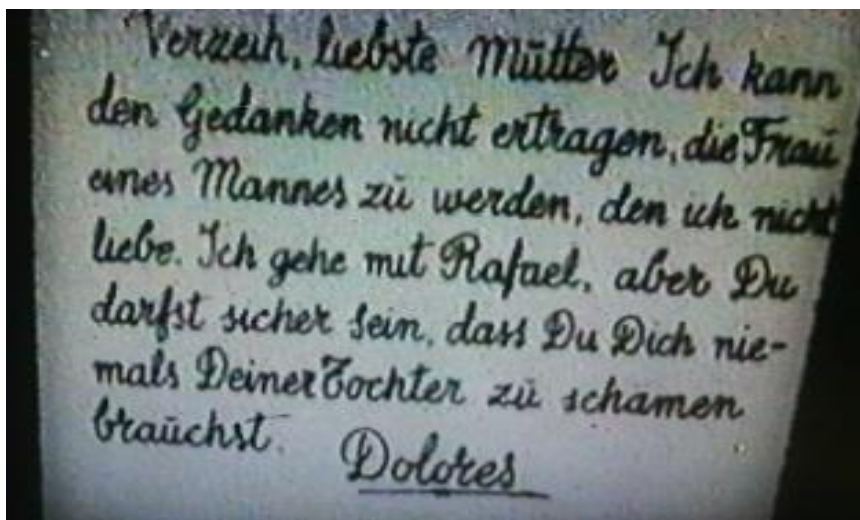 Verzeih, liebste Mutter Ich kann
den Gedanken nicht ertragen, die Frau
eines Mannes zu werden, den ich nicht
liebe. Ich gehe mit Rafael, aber Du
darfst sicher sein, dass Du Dich nie-
mals Deiner Tochter zu schämen
brauchst.
Dolores